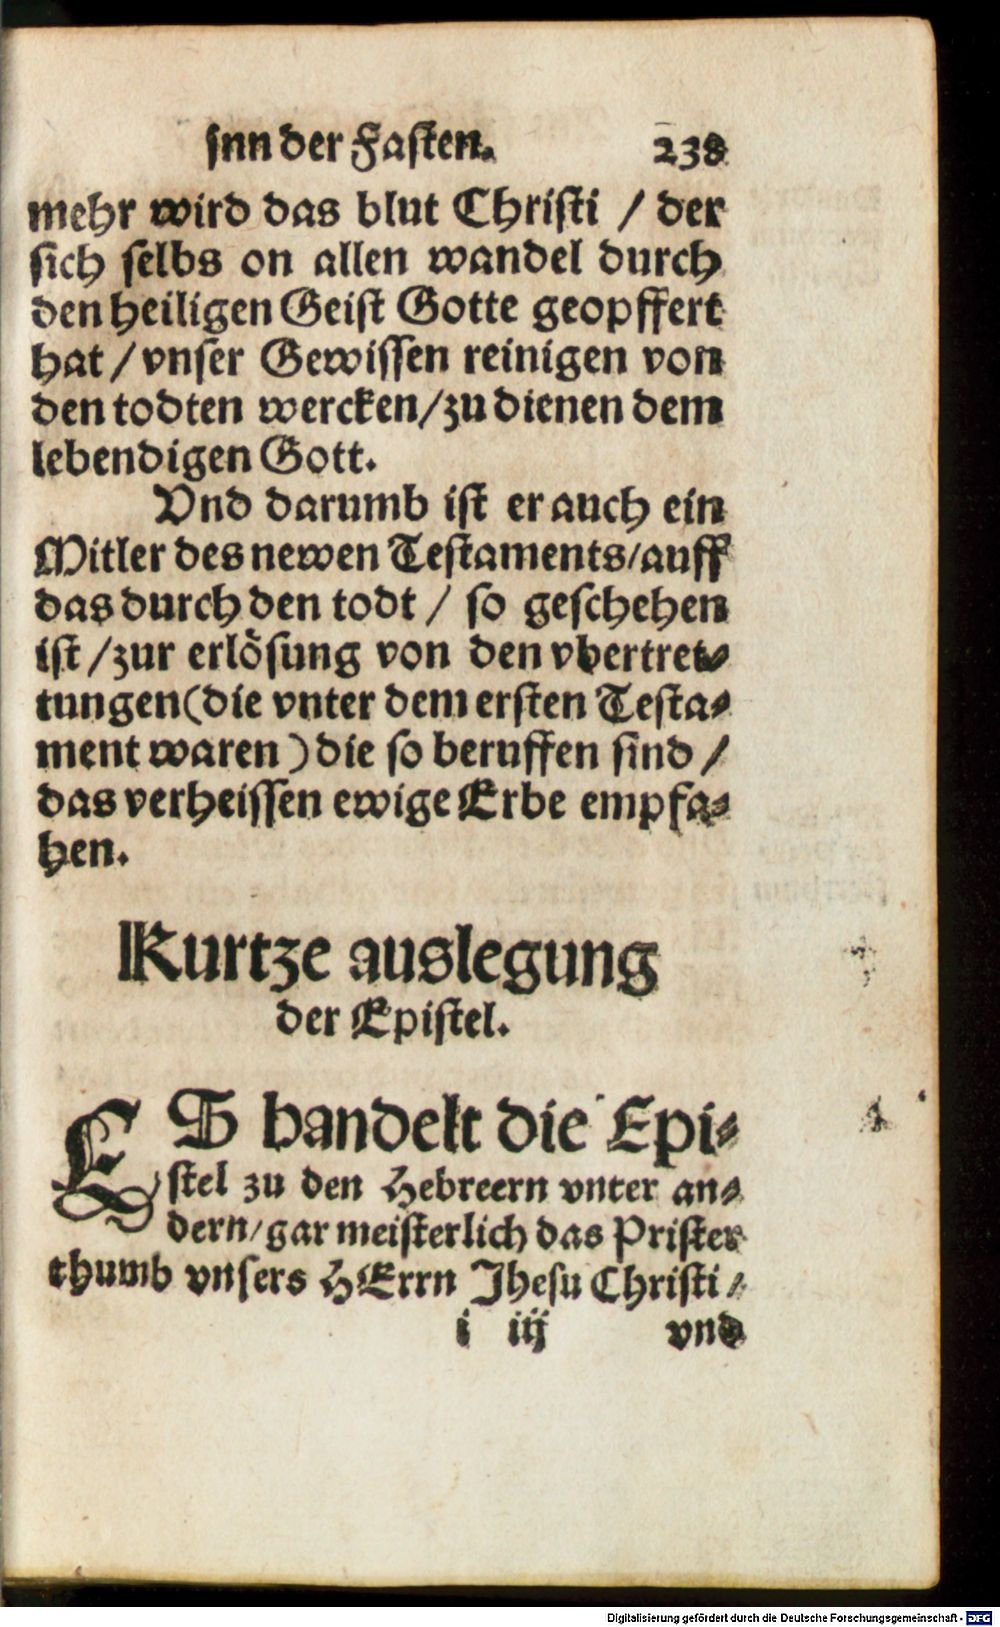 jnn der Fasten. 238
mehr wird das blut Christi / der
sich selbs on allen wandel durch
den heiligen Geist Gotte geopffert
hat / vnser Gewissen reinigen von
den todten wercken/zu dienen dem
lebendigen Gott.
Vnd darumb ist er auch ein
Mitler des newen Testaments/auff
das durch den todt / so geschehen
ist /zur erlösung von den vbertret⸗
tungen(die vnter dem ersten Testa⸗
ment waren ) die so beruffen sind /
das verheissen ewige Erbe empfa⸗
hen.
Kurtze auslegung
der Epistel.
ES handelt die Epi⸗
stel zu den Hebreern vnter an⸗
dern/gar meisterlich das Prister
thumb vnsers HErrn Jhesu Christi /
i iij vnd
Digitalisierung gefördert durch die Deutsche Forschungsgemeinschaft - DFG